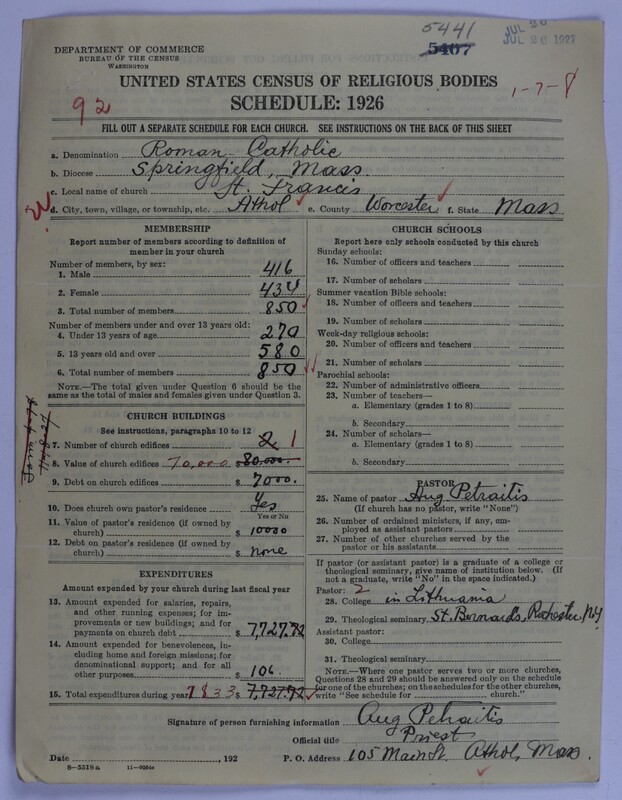 5441
5407
JUL 26
JUL 26 1927
DEPARTMENT OF COMMERCE
BUREAU OF THE CENSUS
WASHINGTON
UNITED STATES CENSUS OF RELIGIOUS BODIES
SCHEDULE: 1926
92
1-7-8
FILL OUT A SEPARATE SCHEDULE FOR EACH CHURCH. SEE INSTRUCTIONS ON THE BACK OF THIS SHEET
a. Denomination Roman Catholic
b. Diocese Springfield, Mass
c. Local name of church St. Francis
d. City, town, village, or township, etc. Athol e. County Worcester f. State Mass
MEMBERSHIP
Report number of members according to definition of member in your church
Number of members, by sex:
1. Male 416
2. Female 434
3. Total number of members 850
Number of members under and over 13 years old:
4. Under 13 years of age 270
5. 13 years old and over 580
6. Total number of members 850
NOTE.—The total given under Question 6 should be the same as the total of males and females given under Question 3.
CHURCH BUILDINGS
See instructions, paragraphs 10 to 12
7. Number of church edifices 2 1
8. Value of church edifices 70,000 $ 80,000.
9. Debt on church edifices $ 7000.
10. Does church own pastor's residence Yes
Yes or No
11. Value of pastor's residence (if owned by church) $ 10000
12. Debt on pastor's residence (if owned by church) $ none
EXPENDITURES
Amount expended by your church during last fiscal year
13. Amount expended for salaries, repairs, and other running expenses; for improvements or new buildings; and for payments on church debt $ 7,727.72
14. Amount expended for benevolences, including home and foreign missions; for denominational support; and for all other purposes $ 106
15. Total expenditures during year 7833 $ 7,727.72
CHURCH SCHOOLS
Report here only schools conducted by this church
Sunday schools:
16. Number of officers and teachers
17. Number of scholars
Summer vacation Bible schools:
18. Number of officers and teachers
19. Number of scholars
Week-day religious schools:
20. Number of officers and teachers
21. Number of scholars
Parochial schools:
22. Number of administrative officers
23. Number of teachers—
a. Elementary (grades 1 to 8)
b. Secondary
24. Number of scholars—
a. Elementary (grades 1 to 8)
b. Secondary
PASTOR
25. Name of pastor Aug Petraitis
(If church has no pastor, write "None")
26. Number of ordained ministers, if any, employed as assistant pastors
27. Number of other churches served by the pastor or his assistants
If pastor (or assistant pastor) is a graduate of a college or theological seminary, give name of institution below. (If not a graduate, write "No" in the space indicated.)
Pastor: 2
28. College in Lithuania
29. Theological seminary St. Bernard's, Rochester, NY
Assistant pastor:
30. College
31. Theological seminary
NOTE.—Where one pastor serves two or more churches, Questions 28 and 29 should be answered only on the schedule for one of the churches; on the schedules for the other churches, write "See schedule for church."
Signature of person furnishing information Aug Petraitis
Official title Priest
Date , 192 P. O. Address 105 Main St. Athol, Mass.
8-5518a 11-9066